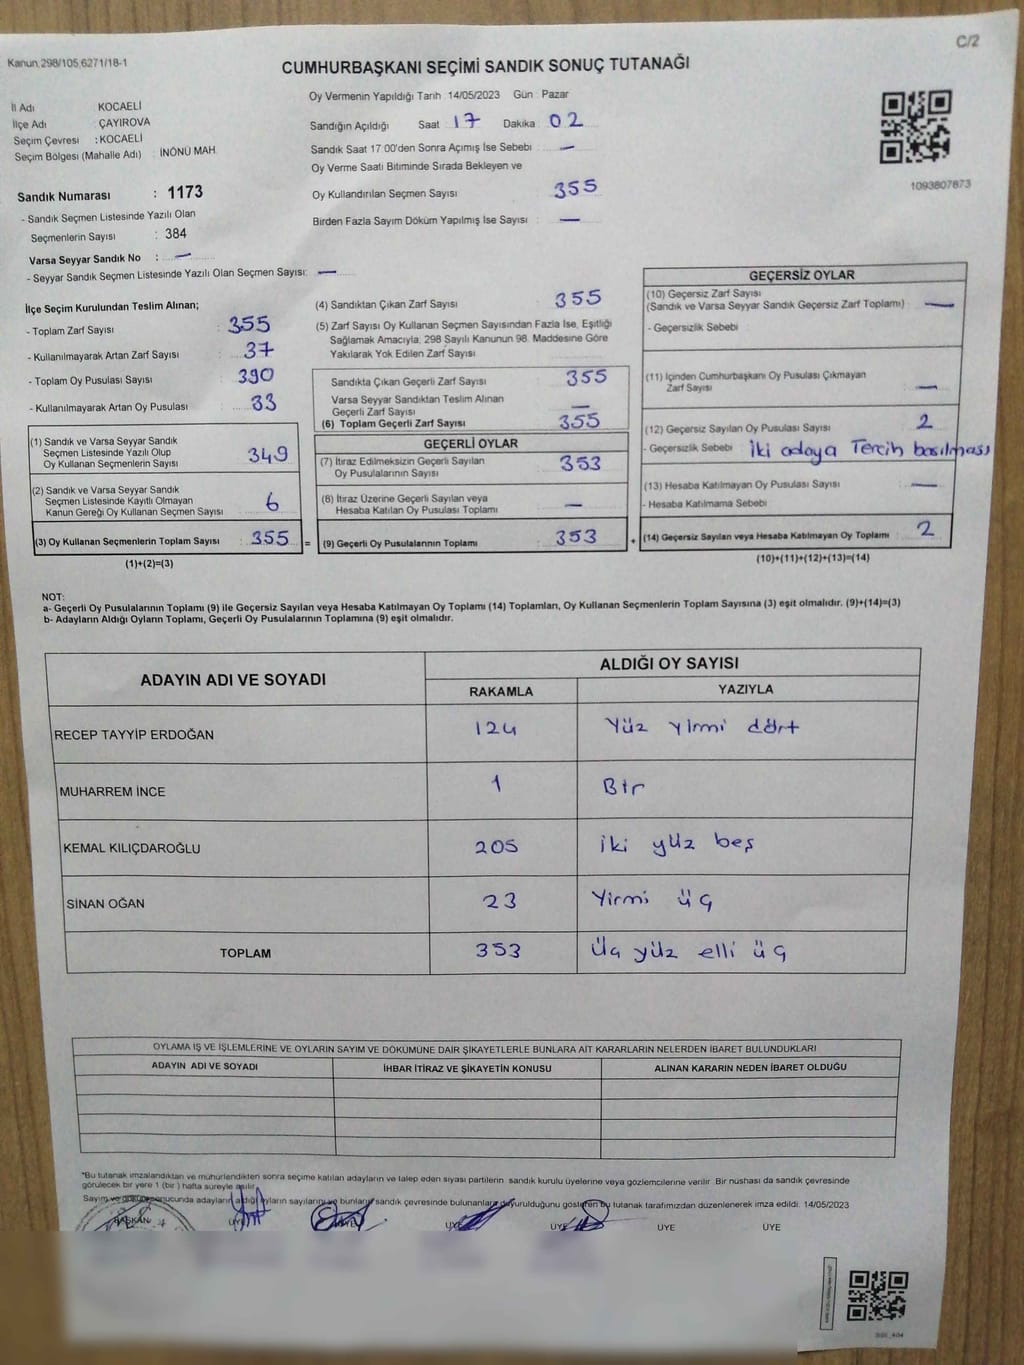 C/2
Kanun 298/105,6271/18-1
CUMHURBAŞKANI SEÇİMİ SANDIK SONUÇ TUTANAĞI
İl Adı KOCAELİ
İlçe Adı ÇAYIROVA
Seçim Çevresi : KOCAELİ
Seçim Bölgesi (Mahalle Adı) : İNÖNÜ MAH.
Sandık Numarası : 1173
- Sandık Seçmen Listesinde Yazılı Olan
Seçmenlerin Sayısı : 384
Varsa Seyyar Sandık No : —
- Seyyar Sandık Seçmen Listesinde Yazılı Olan Seçmen Sayısı: —
Oy Vermenin Yapıldığı Tarih 14/05/2023 Gün Pazar
Sandığın Açıldığı Saat 17 Dakika 02
Sandık Saat 17 00'den Sonra Açımış İse Sebebi —
Oy Verme Saati Bitiminde Sırada Bekleyen ve
Oy Kullandırılan Seçmen Sayısı 355
Birden Fazla Sayım Döküm Yapılmış İse Sayısı : —
1093807873
İlçe Seçim Kurulundan Teslim Alınan;
- Toplam Zarf Sayısı 355
- Kullanılmayarak Artan Zarf Sayısı 37
- Toplam Oy Pusulası Sayısı 390
- Kullanılmayarak Artan Oy Pusulası 33
(1) Sandık ve Varsa Seyyar Sandık
Seçmen Listesinde Yazılı Olup
Oy Kullanan Seçmenlerin Sayısı 349
(2) Sandık ve Varsa Seyyar Sandık
Seçmen Listesinde Kayıtlı Olmayan
Kanun Gereği Oy Kullanan Seçmen Sayısı 6
(3) Oy Kullanan Seçmenlerin Toplam Sayısı : 355 =
(1)+(2)=(3)
(4) Sandıktan Çıkan Zarf Sayısı 355
(5) Zarf Sayısı Oy Kullanan Seçmen Sayısından Fazla İse, Eşitliği
Sağlamak Amacıyla, 298 Sayılı Kanunun 98. Maddesine Göre
Yakılarak Yok Edilen Zarf Sayısı
Sandıkta Çıkan Geçerli Zarf Sayısı 355
Varsa Seyyar Sandıktan Teslim Alınan
Geçerli Zarf Sayısı —
(6) Toplam Geçerli Zarf Sayısı 355
GEÇERLİ OYLAR
(7) İtiraz Edilmeksizin Geçerli Sayılan
Oy Pusulalarının Sayısı 353
(8) İtiraz Üzerine Geçerli Sayılan veya
Hesaba Katılan Oy Pusulası Toplamı —
(9) Geçerli Oy Pusulalarının Toplamı 353 +
GEÇERSİZ OYLAR
(10) Geçersiz Zarf Sayısı
(Sandık ve Varsa Seyyar Sandık Geçersiz Zarf Toplamı) : —
- Geçersizlik Sebebi
(11) İçinden Cumhurbaşkanı Oy Pusulası Çıkmayan
Zarf Sayısı —
(12) Geçersiz Sayılan Oy Pusulası Sayısı : 2
- Geçersizlik Sebebi : İki adaya Tercih basılması
(13) Hesaba Katılmayan Oy Pusulası Sayısı : —
- Hesaba Katılmama Sebebi
(14) Geçersiz Sayılan veya Hesaba Katılmayan Oy Toplamı : 2
(10)+(11)+(12)+(13)=(14)
NOT:
a- Geçerli Oy Pusulalarının Toplamı (9) ile Geçersiz Sayılan veya Hesaba Katılmayan Oy Toplamı (14) Toplamları, Oy Kullanan Seçmenlerin Toplam Sayısına (3) eşit olmalıdır. (9)+(14)=(3)
b- Adayların Aldığı Oyların Toplamı, Geçerli Oy Pusulalarının Toplamına (9) eşit olmalıdır.
ADAYIN ADI VE SOYADI ALDIĞI OY SAYISI
RAKAMLA YAZIYLA
RECEP TAYYİP ERDOĞAN 124 Yüz yirmi dört
MUHARREM İNCE 1 Bir
KEMAL KILIÇDAROĞLU 205 iki yüz beş
SİNAN OĞAN 23 Yirmi üç
TOPLAM 353 Üç yüz elli üç
OYLAMA İŞ VE İŞLEMLERİNE VE OYLARIN SAYIM VE DÖKÜMÜNE DAİR ŞİKAYETLERLE BUNLARA AİT KARARLARIN NELERDEN İBARET BULUNDUKLARI
ADAYIN ADI VE SOYADI İHBAR İTİRAZ VE ŞİKAYETİN KONUSU ALINAN KARARIN NEDEN İBARET OLDUĞU
*Bu tutanak imzalandıktan ve mühürlendikten sonra seçime katılan adayların ve talep eden siyasi partilerin sandık kurulu üyelerine veya gözlemcilerine verilir. Bir nüshası da sandık çevresinde
görülecek bir yere 1 (bir ) hafta süreyle asılır.
Sayım ve döküm sonucunda adayların aldığı oyların sayılarını ve bunların sandık çevresinde bulunanlara duyurulduğunu gösteren bu tutanak tarafımızdan düzenlenerek imza edildi. 14/05/2023
BAŞKAN ÜYE ÜYE ÜYE ÜYE ÜYE ÜYE